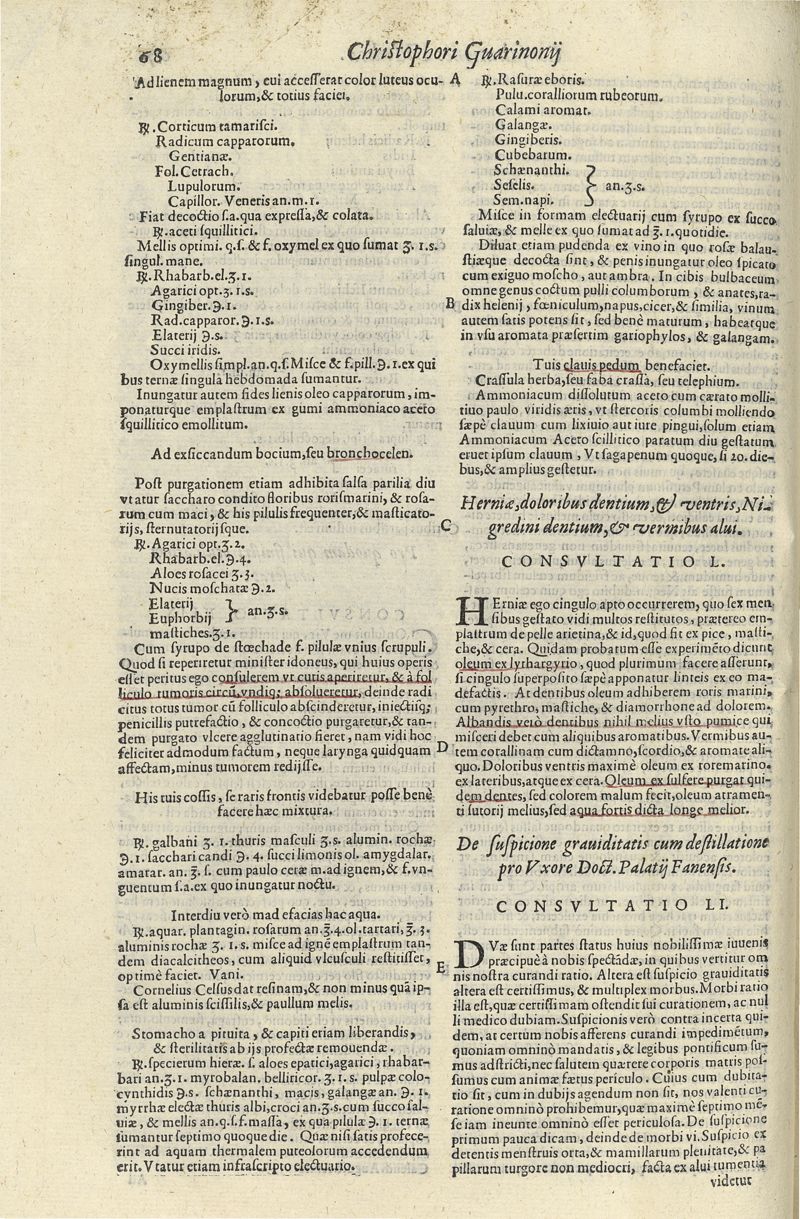 68
Christophori Guarinonij
Ad lienem magnum, cui accesserat color luteus ocu-
lorum, & totius faciei.
℞. Corticum tamarisci.
Radicum capparorum.
Gentianæ.
Fol. Cetrach.
Lupulorum.
Capillor. Veneris an. m. 1.
Fiat decoctio s.a. qua expressa, & colata.
℞. aceti squillitici.
Mellis optimi. q.s. & f. oxymel ex quo sumat ℥. 1. s.
singul. mane.
℞. Rhabarb. el. ʒ. 1.
Agarici opt. ʒ. 1. s.
Gingiber. ℈. 1.
Rad. cappar or. ℈. 1. s.
Elaterij ℈. s.
Succi iridis.
Oxymellis simpl. an. q. s. Misce & f. pill. ℈. 1. ex qui
bus ternæ singula hebdomada sumantur.
Inungatur autem sides lienis oleo capparorum, im-
ponaturque emplastrum ex gumi ammoniaco aceto
squillitico emollitum.
Ad exsiccandum bocium, seu bronchocelen.
Post purgationem etiam adhibita salsa parilia diu
vtatur saccharo condito floribus rorismarini, & rosa-
rum cum maci, & his pilulis frequenter, & masticato-
rijs, sternutatorijsque.
℞. Agarici opt. ʒ. 2.
Rhabarb. el. ℈. 4.
Aloes rosacei ʒ. 3.
Nucis moschatæ ℈. 2.
Elaterij
Euphorbij } an. ʒ. s.
mastiches. ʒ. 1.
Cum syrupo de stœchade f. pilulæ vnius scrupuli.
Quod si reperiretur minister idoneus, qui huius operis
esset peritus ego consulerem vt cutis aperiretur, & à fol
liculo tumoris circũ, vndiq; absolueretur, deinde radi
citus totus tumor cũ folliculo abscinderetur, iniectisq;
penicillis putrefactio, & concoctio purgaretur, & tan-
dem purgato vlcere agglutinatio fieret, nam vidi hoc
feliciter admodum factum, neque larynga quidquam
affectam, minus tumorem redijsse.
His tuis cossis, se raris frontis videbatur posse benè
facere hæc mixtura.
℞. galbani ʒ. 1. thuris masculi ʒ. s. alumin. rochæ
℈. 1. sacchari candi ℈. 4. succi limonis ol. amygdalar.
amarar. an. ℥. s. cum paulo ceræ m. ad ignem, & f. vn-
guentum s.a. ex quo inungatur noctu.
Interdiu verò mad efacias hac aqua.
℞. aquar. plantagin. rosarum an. ℥. 4. ol. tartari, ℥. 3.
aluminis rochæ ʒ. 1. s. misce ad ignẽ emplastrum tan-
dem diacalcitheos, cum aliquid vlcusculi restitisset,
optimè faciet. Vani.
Cornelius Celsus dat resinam, & non minus quã ip-
sa est aluminis scissilis, & paullum melis.
Stomacho a pituita, & capiti etiam liberandis,
& sterilitatis ab ijs profectæ remouendæ.
℞. specierum hieræ. s. aloes epatici, agarici, rhabar-
bari an. ʒ. 1. myrobalan. belliricor. ʒ. 1. s. pulpæ colo-
cynthidis ℈. s. schænanthi, macis, galangæ an. ℈. 1.
myrrhæ electæ thuris albi, croci an. ʒ. s. cum succo sal-
uiæ, & mellis an. q. s. f. massa, ex qua pilulæ ℈. 1. ternæ
sumantur septimo quoque die. Quæ nisi satis profece-
rint ad aquam thermalem puteolorum accedendum
erit. Vtatur etiam infrascripto electuario.
A
℞. Rasuræ eboris.
Pulu. coralliorum rubeorum.
Calami aromat.
Galangæ.
Gingiberis.
Cubebarum.
Schænanthi.
Seselis. } an. ʒ. s.
Sem. napi.
Misce in formam electuarij cum syrupo ex succo
saluiæ, & melle ex quo sumat ad ℥. 1. quotidie.
Diluat etiam pudenda ex vino in quo rosæ balau-
stiæque decocta sint, & penis inungatur oleo spicato
cum exiguo moscho, aut ambra. In cibis bulbaceum
omne genus coctum pulli columborum, & anates, ra-
B
dix helenij, fœniculum, napus, cicer, & similia, vinum
autem satis potens sit, sed benè maturum, habeatque
in vsu aromata præsertim gariophylos, & galangam.
Tuis clauis pedum benefaciet.
Crassula herba, seu faba crassa, seu telephium.
Ammoniacum dissolutum aceto cum cærato molli-
tiuo paulo viridis æris, vt stercoris columbi molliendo
sæpè clauum cum lixiuio aut iure pingui, solum etiam
Ammoniacum Aceto scillitico paratum diu gestatum
eruet ipsum clauum, Vt sagapenum quoque, si 20. die-
bus, & amplius gestetur.
Herniæ, doloribus dentium, & ventris, Ni-
C
gredini dentium, & vermibus alui.
CONSVLTATIO L.
HErniæ ego cingulo apto occurrerem, quo sex men
sibus gestato vidi multos restitutos, prætereo em-
plastrum de pelle arietina, & id, quod fit ex pice, masti-
che, & cera. Quidam probatum esse experimẽto dicunt
oleum ex lythargyrio, quod plurimum facere asserunt,
si cingulo superposito sæpè apponatur linteis ex eo ma-
defactis. At dentibus oleum adhiberem roris marini,
cum pyrethro, mastiche, & diamorrhone ad dolorem.
Albandis verò dentibus nihil melius vsto pumice qui
misceri debet cum aliquibus aromatibus. Vermibus au-
D
tem corallinam cum dictamno, scordio, & aromate ali-
quo. Doloribus ventris maximè oleum ex roremarino,
ex lateribus, atque ex cera. Oleum ex sulfere purgat qui-
dem dentes, sed colorem malum fecit, oleum atramen-
ti sutorij melius, sed aqua fortis dicta longe melior.
De suspicione grauiditatis cum destillatione
pro Vxore Doct. Palatij Fanensis.
CONSVLTATIO LI.
DVæ sunt partes status huius nobilissimæ iuuenis
præcipuè à nobis spectãdæ, in quibus vertitur om
E
nis nostra curandi ratio. Altera est suspicio grauiditatis
altera est certissimus, & multiplex morbus. Morbi ratio
illa est, quæ certissimam ostendit sui curationem, ac nul
li medico dubiam. Suspicionis verò contra incerta qui-
dem, at certum nobis afferens curandi impedimẽtum,
quoniam omninò mandatis, & legibus pontificum su-
mus adstricti, nec salutem quærere corporis matris pos-
sumus cum animæ fætus periculo. Cuius cum dubita-
tio sit, cum in dubijs agendum non sit, nos valenti cu-
ratione omninò prohibemur, quæ maximè septimo mẽ-
se iam ineunte omninò esset periculosa. De suspicione
primum pauca dicam, deinde de morbi vi. Suspicio ex
detentis menstruis orta, & mamillarum plenitate, & pa
pillarum turgore non mediocri, facta ex alui tumentia
videtur